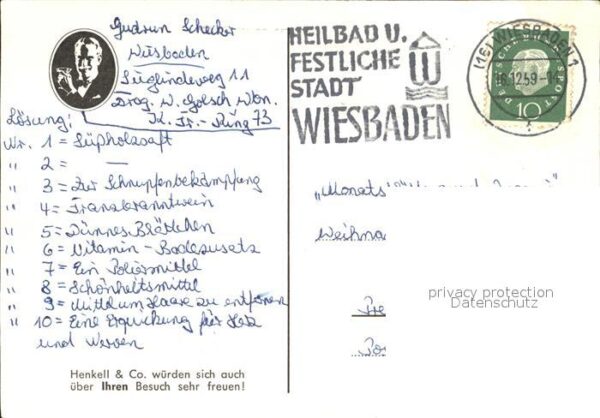 Gudrun Schecker
Wiesbaden
Sieglindeweg 11
Drog. W. Golsch Wbn.
K. Fr.-Ring 73
Lösung:
Nr. 1 = Süßholzsaft
" 2 = —
" 3 = Zur Schnupfenbekämpfung
" 4 = Franzbranntwein
" 5 = Dünnes Blättchen
" 6 = Vitamin-Badezusatz
" 7 = Ein Poliermittel
" 8 = Schönheitsmittel
" 9 = Mittel um Haare zu entfernen
" 10 = Eine Erquickung für Herz
und Nerven
Henkell & Co. würden sich auch
über Ihren Besuch sehr freuen!
HEILBAD U.
FESTLICHE
STADT
WIESBADEN
(16) WIESBADEN 1
16.12.59
DEUTSCHE BUNDESPOST
10
„Monats
Weihna
privacy protection
Datenschutz